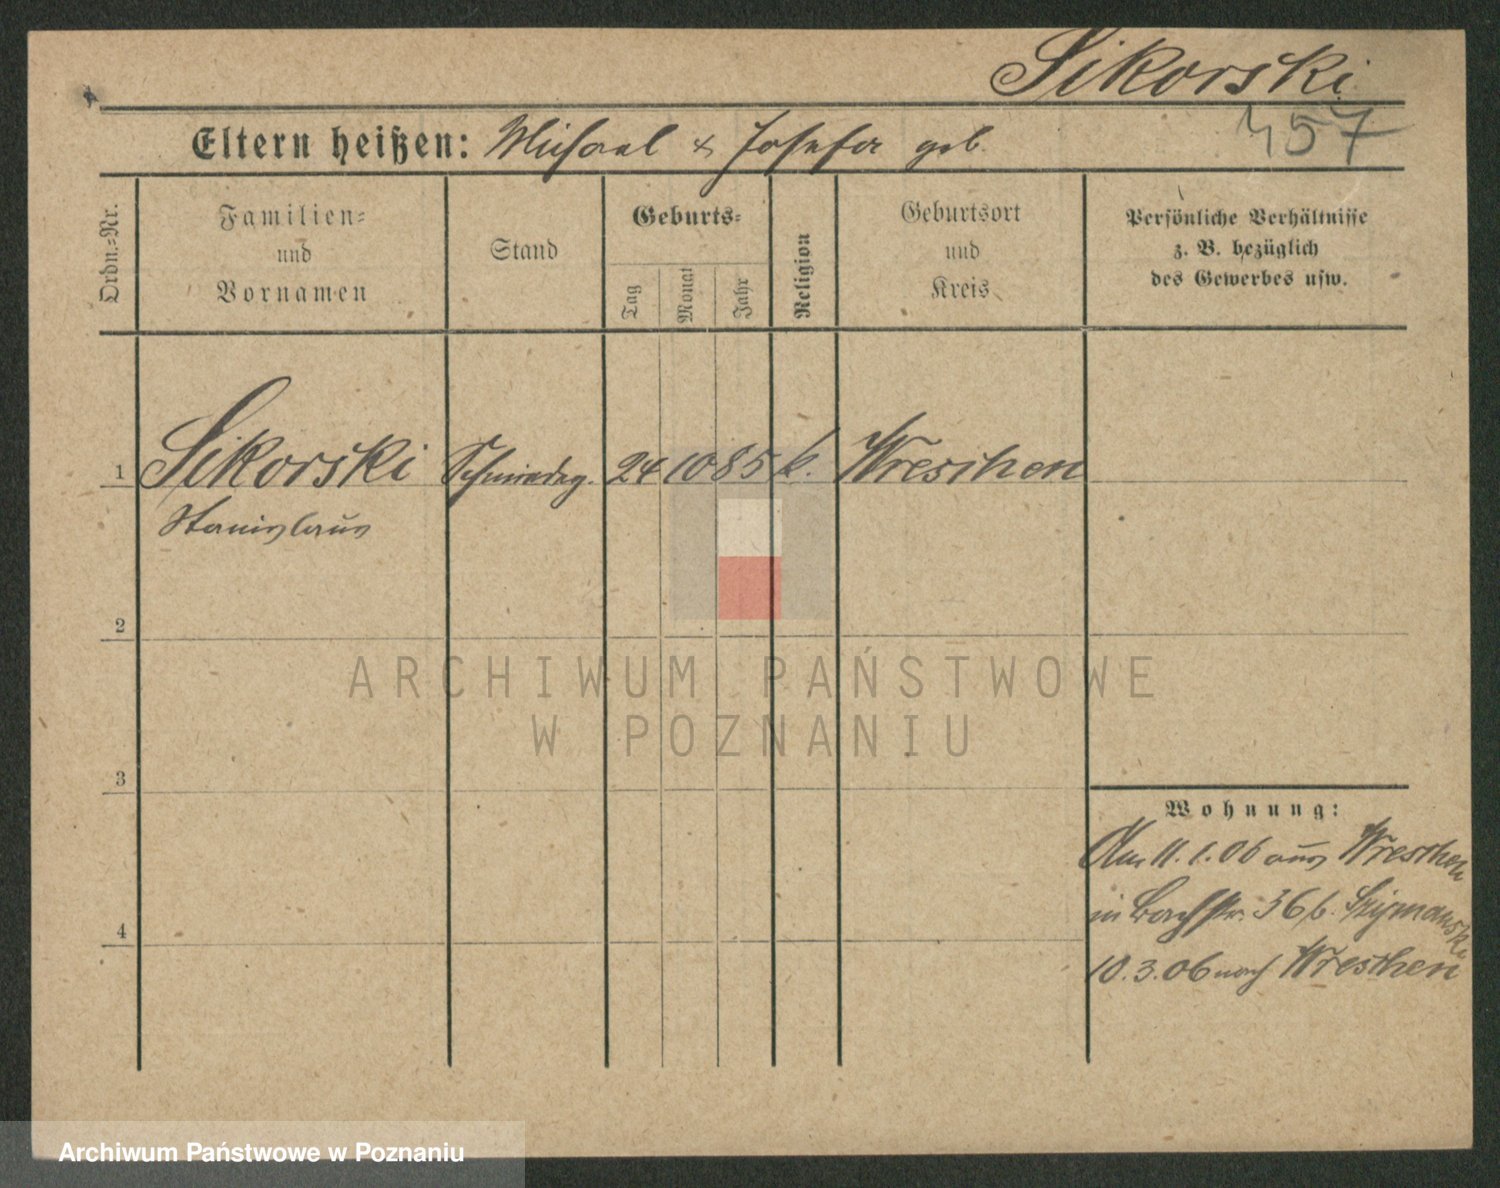 Sikorski
Eltern heißen: Michael & Josefa geb.
457
Ordn.=Nr.
Familien=
und
Vornamen
Stand
Geburts=
Tag
Monat
Jahr
Religion
Geburtsort
und
Kreis
Persönliche Verhältnisse
z. B. bezüglich
des Gewerbes usw.
1 Sikorski Schmiedeg. 24 10 85 k. Wreschen
Stanislaus
2
ARCHIWUM PAŃSTWOWE
W POZNANIU
3
Wohnung:
Am 11.1.06 aus Wreschen
in Bachstr. 36 b. Szymanski
4
10.3.06 nach Wreschen
Archiwum Państwowe w Poznaniu